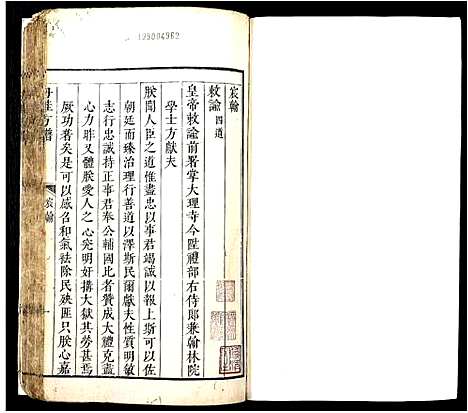 129004962
宸翰
敕諭四道
皇帝敕諭前署掌大理寺今陞禮部右侍郎兼翰林院
學士方獻夫
朕聞人臣之道惟盡忠以事君竭誠以報上斯可以佐
朝廷而臻治理行善道以澤斯民爾獻夫性質明敏
志行忠誠持正事君奉公輔國比者贊成大禮克盡
心力昨又體朕愛人之心究明奸搆大獄其勞甚焉
厥功著矣是可以感召和氣祛除民殃匪只朕心嘉
丹桂方譜
宸翰